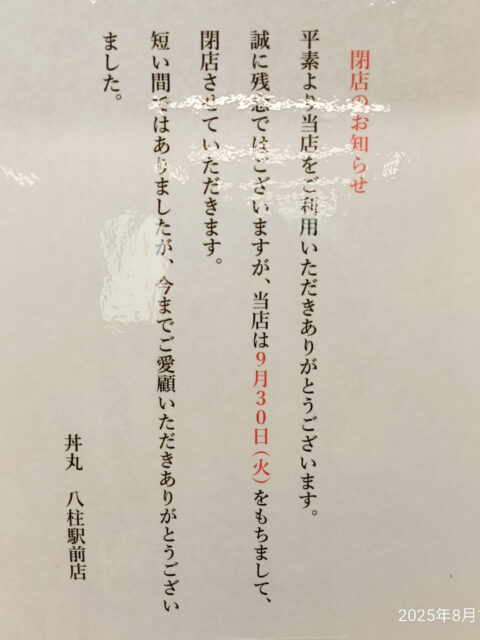 閉店のお知らせ
平素より当店をご利用いただきありがとうございます。
誠に残念ではございますが、当店は9月30日(火)をもちまして、
閉店させていただきます。
短い間ではありましたが、今までご愛顧いただきありがとうござい
ました。
丼丸 八柱駅前店
2025年8月